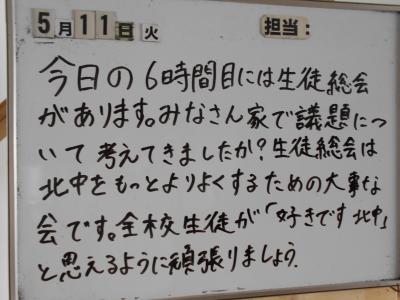 5月11日火 担当:
今日の6時間目には生徒総会
があります。みなさん家で議題につ
いて考えてきましたか?生徒総会は
北中をもっとよりよくするための大事な
会です。全校生徒が「好きです北中」
と思えるように頑張りましょう.